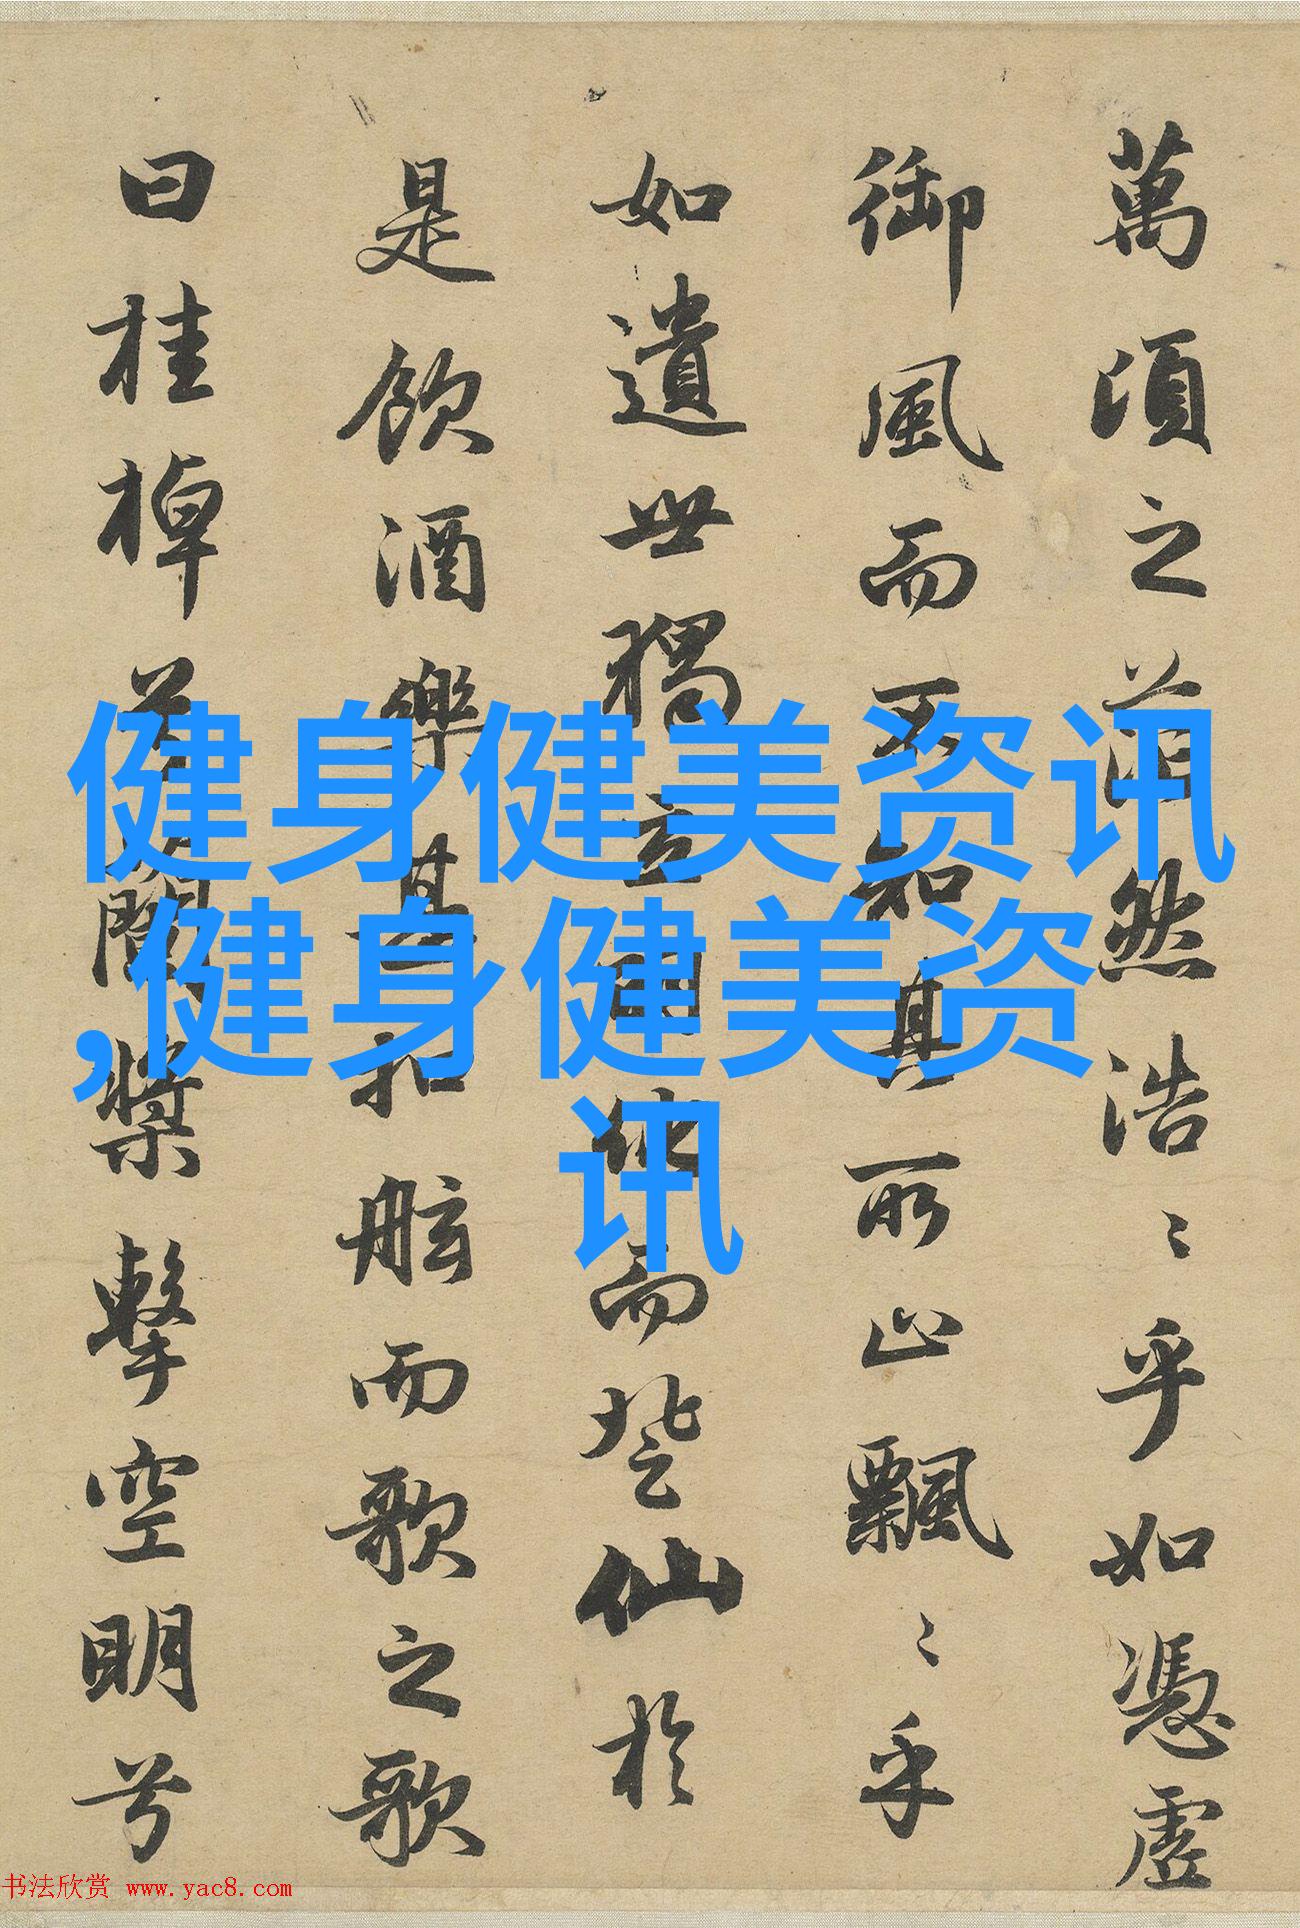 萬頃之茫然浩〻乎如憑虛
御風而不知其所止飄〻乎
如遺世獨立羽化而登仙於
是飲酒樂甚扣舷而歌之歌
曰桂棹兮蘭槳擊空明兮
健身健美资讯
,健身健美资
讯
书法欣赏 www.yac8.com